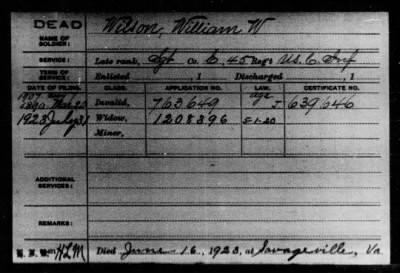 DEAD
NAME OF SOLDIER:
Wilson, William W
SERVICE:
Late rank, Sgt Co. E, 45 Reg't U.S.C. Inf
TERM OF SERVICE:
Enlisted , 1 Discharged , 1
DATE OF FILING. CLASS. APPLICATION NO. LAW. CERTIFICATE NO.
1907 Age
1890 Mar 20 Invalid, 763649 J 639646
1923 July 31 Widow, 1208396 5-1-20
Minor,
ADDITIONAL SERVICES:
REMARKS:
HLM Died June 16, 1923, at Savageville, Va.